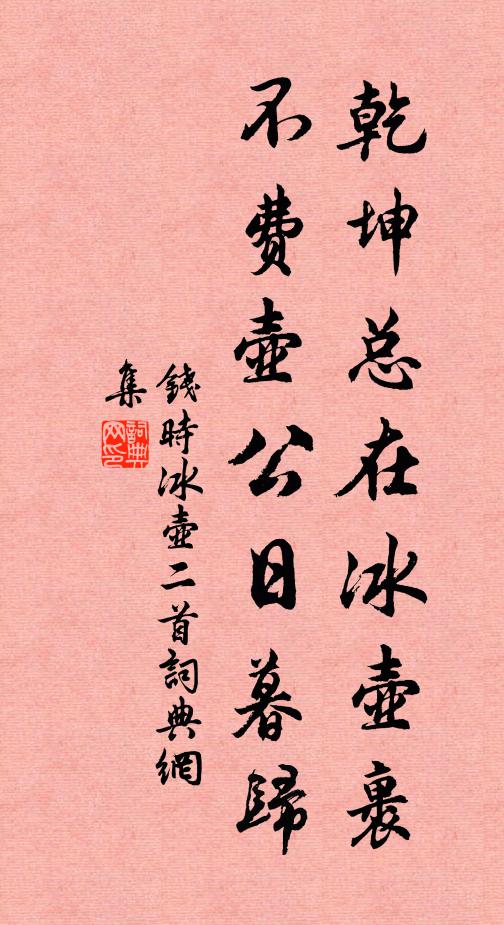 乾坤总在冰壺裏
不费壺公日暮歸
錢時冰壺二首詞典網
集
詞典
网印